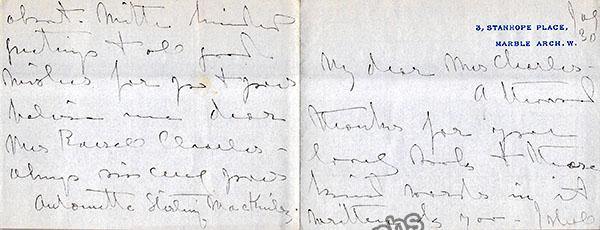 3, STANHOPE PLACE,
MARBLE ARCH. W.
30
My dear Mrs Charles -
A thousand
thanks for your
lovely book & those
kind words in it
written by you - I shall
about. With kindest
greetings & all good
wishes for you & yours
believe me dear
Mrs Russell Charles -
always sincerely yours
Antoinette Sterling MacKinlay